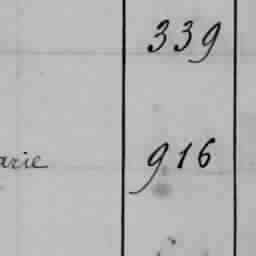 339
arie 916